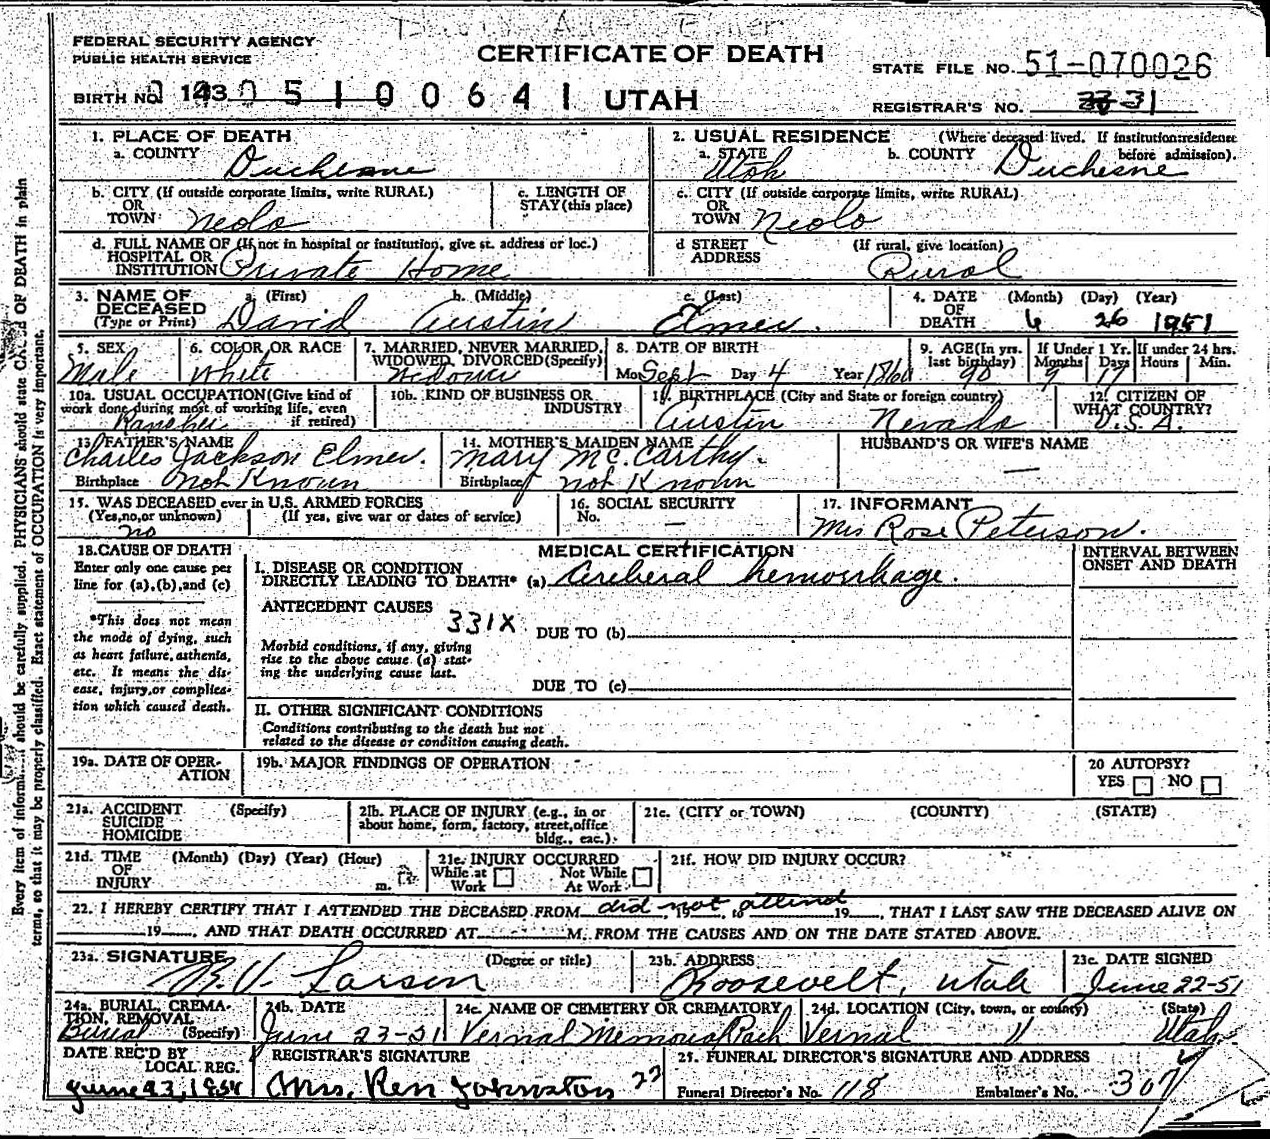 David Austin Elmer
FEDERAL SECURITY AGENCY
PUBLIC HEALTH SERVICE
CERTIFICATE OF DEATH
STATE FILE NO. 51-070026
BIRTH NO. 143 0 5 1 0 0 6 4 1 UTAH
REGISTRAR'S NO. 31
1. PLACE OF DEATH
a. COUNTY Duchesne
2. USUAL RESIDENCE (Where deceased lived. If institution:residence before admission).
a. STATE Utah b. COUNTY Duchesne
b. CITY (If outside corporate limits, write RURAL)
OR
TOWN Neola
c. LENGTH OF
STAY (this place)
c. CITY (If outside corporate limits, write RURAL)
OR
TOWN Neola
d. FULL NAME OF (If not in hospital or institution, give st. address or loc.)
HOSPITAL OR
INSTITUTION Private Home
d STREET (If rural, give location)
ADDRESS Rural
3. NAME OF
DECEASED
(Type or Print)
a. (First) b. (Middle) c. (Last)
David Austin Elmer.
4. DATE (Month) (Day) (Year)
OF
DEATH 6 26 1951
5. SEX
Male
6. COLOR OR RACE
White
7. MARRIED, NEVER MARRIED,
WIDOWED, DIVORCED(Specify)
Widower
8. DATE OF BIRTH
Mo Sept Day 4 Year 1860
9. AGE(In yrs. last birthday) 90
If Under 1 Yr.
Months 9 Days 17
If under 24 hrs.
Hours Min.
10a. USUAL OCCUPATION(Give kind of
work done during most of working life, even
if retired)
Rancher
10b. KIND OF BUSINESS OR
INDUSTRY
11. BIRTHPLACE (City and State or foreign country)
Austin Nevada
12. CITIZEN OF
WHAT COUNTRY?
U.S.A.
13. FATHER'S NAME
Charles Jackson Elmer.
Birthplace not Known
14. MOTHER'S MAIDEN NAME
Mary McCarthy.
Birthplace not Known
HUSBAND'S OR WIFE'S NAME
—
15. WAS DECEASED ever in U.S. ARMED FORCES
(Yes,no,or unknown) (If yes, give war or dates of service)
no
16. SOCIAL SECURITY
No. —
17. INFORMANT
Mrs Rose Peterson.
18.CAUSE OF DEATH
Enter only one cause per
line for (a),(b),and (c)
*This does not mean
the mode of dying, such
as heart failure,asthenia,
etc. It means the dis-
ease, injury,or complica-
tion which caused death.
MEDICAL CERTIFICATION
I. DISEASE OR CONDITION
DIRECTLY LEADING TO DEATH* (a) Cerebral hemorrhage.
ANTECEDENT CAUSES
331X DUE TO (b)
Morbid conditions, if any, giving
rise to the above cause (a) stat-
ing the underlying cause last.
DUE TO (c)
II. OTHER SIGNIFICANT CONDITIONS
Conditions contributing to the death but not
related to the disease or condition causing death.
INTERVAL BETWEEN
ONSET AND DEATH
19a. DATE OF OPER-
ATION
19b. MAJOR FINDINGS OF OPERATION
20 AUTOPSY?
YES NO
21a. ACCIDENT (Specify)
SUICIDE
HOMICIDE
21b. PLACE OF INJURY (e.g., in or
about home, form, factory, street,office
bldg., eac.)
21c. (CITY or TOWN) (COUNTY) (STATE)
21d. TIME (Month) (Day) (Year) (Hour)
OF
INJURY m.
21e. INJURY OCCURRED
While at Not While
Work At Work
21f. HOW DID INJURY OCCUR?
22. I HEREBY CERTIFY THAT I ATTENDED THE DECEASED FROM did not attend, 19 , to 19 , THAT I LAST SAW THE DECEASED ALIVE ON
19 , AND THAT DEATH OCCURRED AT M. FROM THE CAUSES AND ON THE DATE STATED ABOVE.
23a. SIGNATURE (Degree or title)
R.V. Larson
23b. ADDRESS
Roosevelt, Utah
23c. DATE SIGNED
June 22-51
24a. BURIAL, CREMA-
TION, REMOVAL
(Specify) Burial
24b. DATE
June 23-51
24c. NAME OF CEMETERY OR CREMATORY
Vernal Memorial Park
24d. LOCATION (City, town, or county) (State)
Vernal " Utah
DATE REC'D BY
LOCAL REG.
June 23, 1951
REGISTRAR'S SIGNATURE
Mrs. Ren Johnston 22
25. FUNERAL DIRECTOR'S SIGNATURE AND ADDRESS
Funeral Director's No. 118 Embalmer's No. 307
Every item of information should be carefully supplied. PHYSICIANS should state CAUSE OF DEATH in plain
terms, so that it may be properly classified. Exact statement of OCCUPATION is very important.